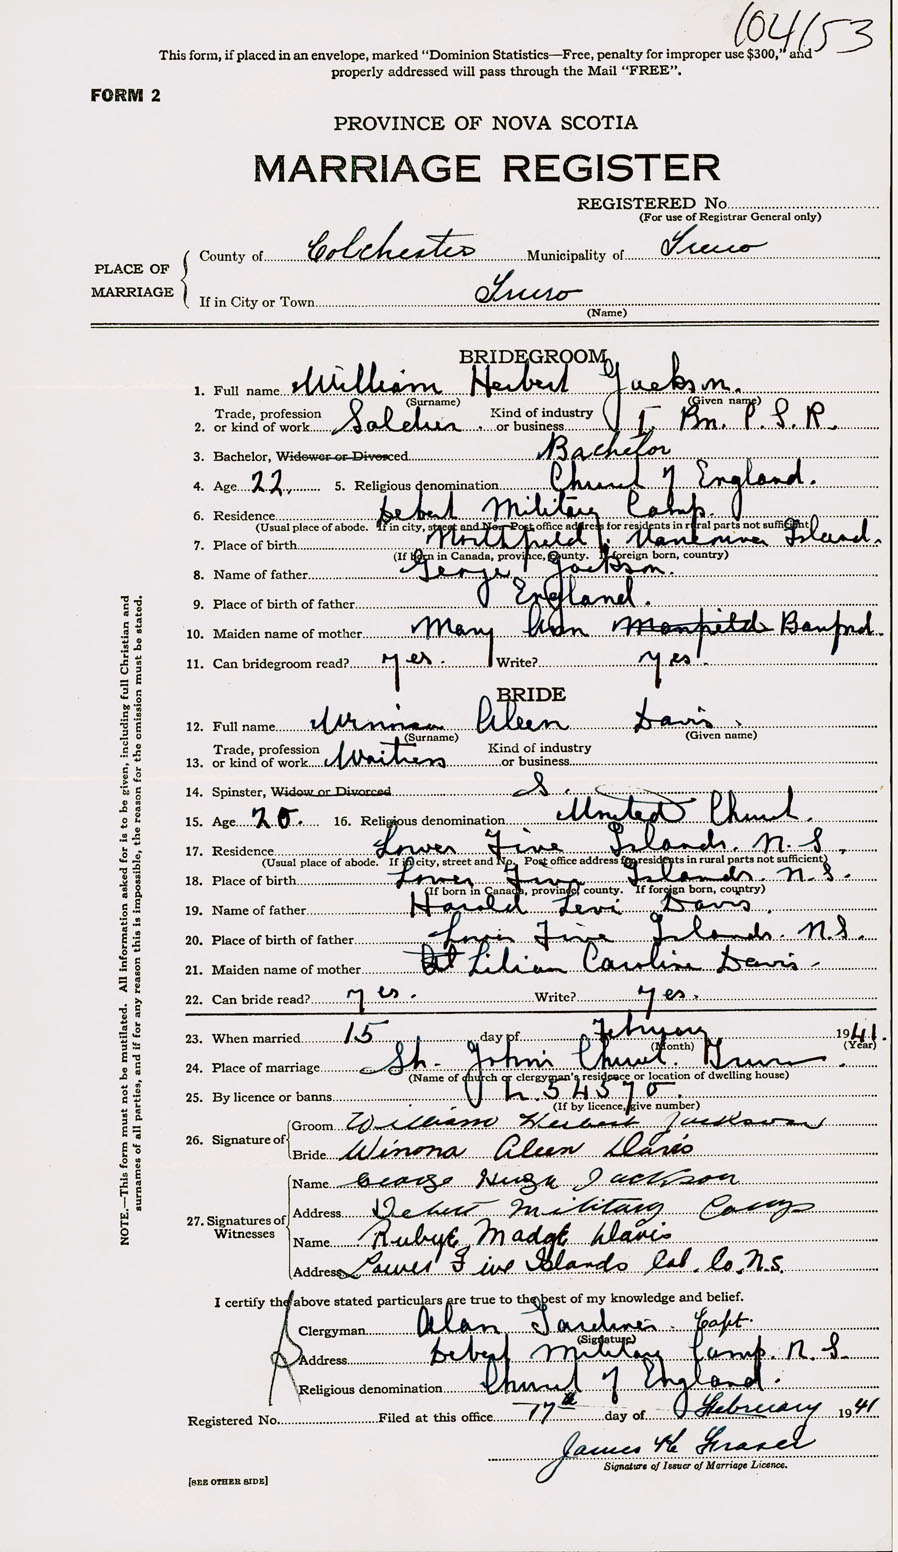 104153
This form, if placed in an envelope, marked “Dominion Statistics—Free, penalty for improper use $300,” and
properly addressed will pass through the Mail “FREE”.
FORM 2
PROVINCE OF NOVA SCOTIA
MARRIAGE REGISTER
REGISTERED No.
(For use of Registrar General only)
PLACE OF MARRIAGE
County of Colchester Municipality of Truro
If in City or Town Truro
(Name)
BRIDEGROOM
1. Full name William Herbert Jackson.
(Surname) (Given name)
2. Trade, profession or kind of work Soldier. Kind of industry or business 1. Bn. P. S. R.
3. Bachelor, Widower or Divorced Bachelor
4. Age 22. 5. Religious denomination Church of England.
6. Residence Debert Military Camp.
(Usual place of abode. If in city, street and No. Post office address for residents in rural parts not sufficient)
7. Place of birth Northfield. Vancouver Island.
(If born in Canada, province, county. If foreign born, country)
8. Name of father George Jackson.
9. Place of birth of father England.
10. Maiden name of mother Mary Ann Banford.
11. Can bridegroom read? yes. Write? yes.
BRIDE
12. Full name Aileen Davis.
(Surname) (Given name)
13. Trade, profession or kind of work Waitress Kind of industry or business
14. Spinster, Widow or Divorced S.
15. Age 20. 16. Religious denomination United Church.
17. Residence Lower Five Islands. N. S.
(Usual place of abode. If in city, street and No. Post office address for residents in rural parts not sufficient)
18. Place of birth Lower Five Islands. N. S.
(If born in Canada, province, county. If foreign born, country)
19. Name of father Harold Levi Davis.
20. Place of birth of father Lower Five Islands. N.S.
21. Maiden name of mother Lilian Caroline Davis.
22. Can bride read? yes. Write? yes.
23. When married 15 day of February 1941.
(Month) (Year)
24. Place of marriage St. John's Church. Truro.
(Name of church or clergyman's residence or location of dwelling house)
25. By licence or banns L. 54570.
(If by licence, give number)
26. Signature of
Groom William Herbert Jackson
Bride Winona Aleen Davis
27. Signatures of Witnesses
Name George Hugh Jackson
Address Debert Military Camp
Name Rubye Madge Davis
Address Lower Five Islands Col. Co. N.S.
I certify the above stated particulars are true to the best of my knowledge and belief.
Clergyman Alan Gardiner. Capt.
(Signature)
Address Debert Military Camp. N. S.
Religious denomination Church of England.
Registered No. Filed at this office 17th day of February 1941
James Fraser
Signature of Issuer of Marriage Licence.
[SEE OTHER SIDE]
NOTE.—This form must not be mutilated. All information asked for is to be given, including full Christian and
surnames of all parties, and if for any reason this is impossible, the reason for the omission must be stated.